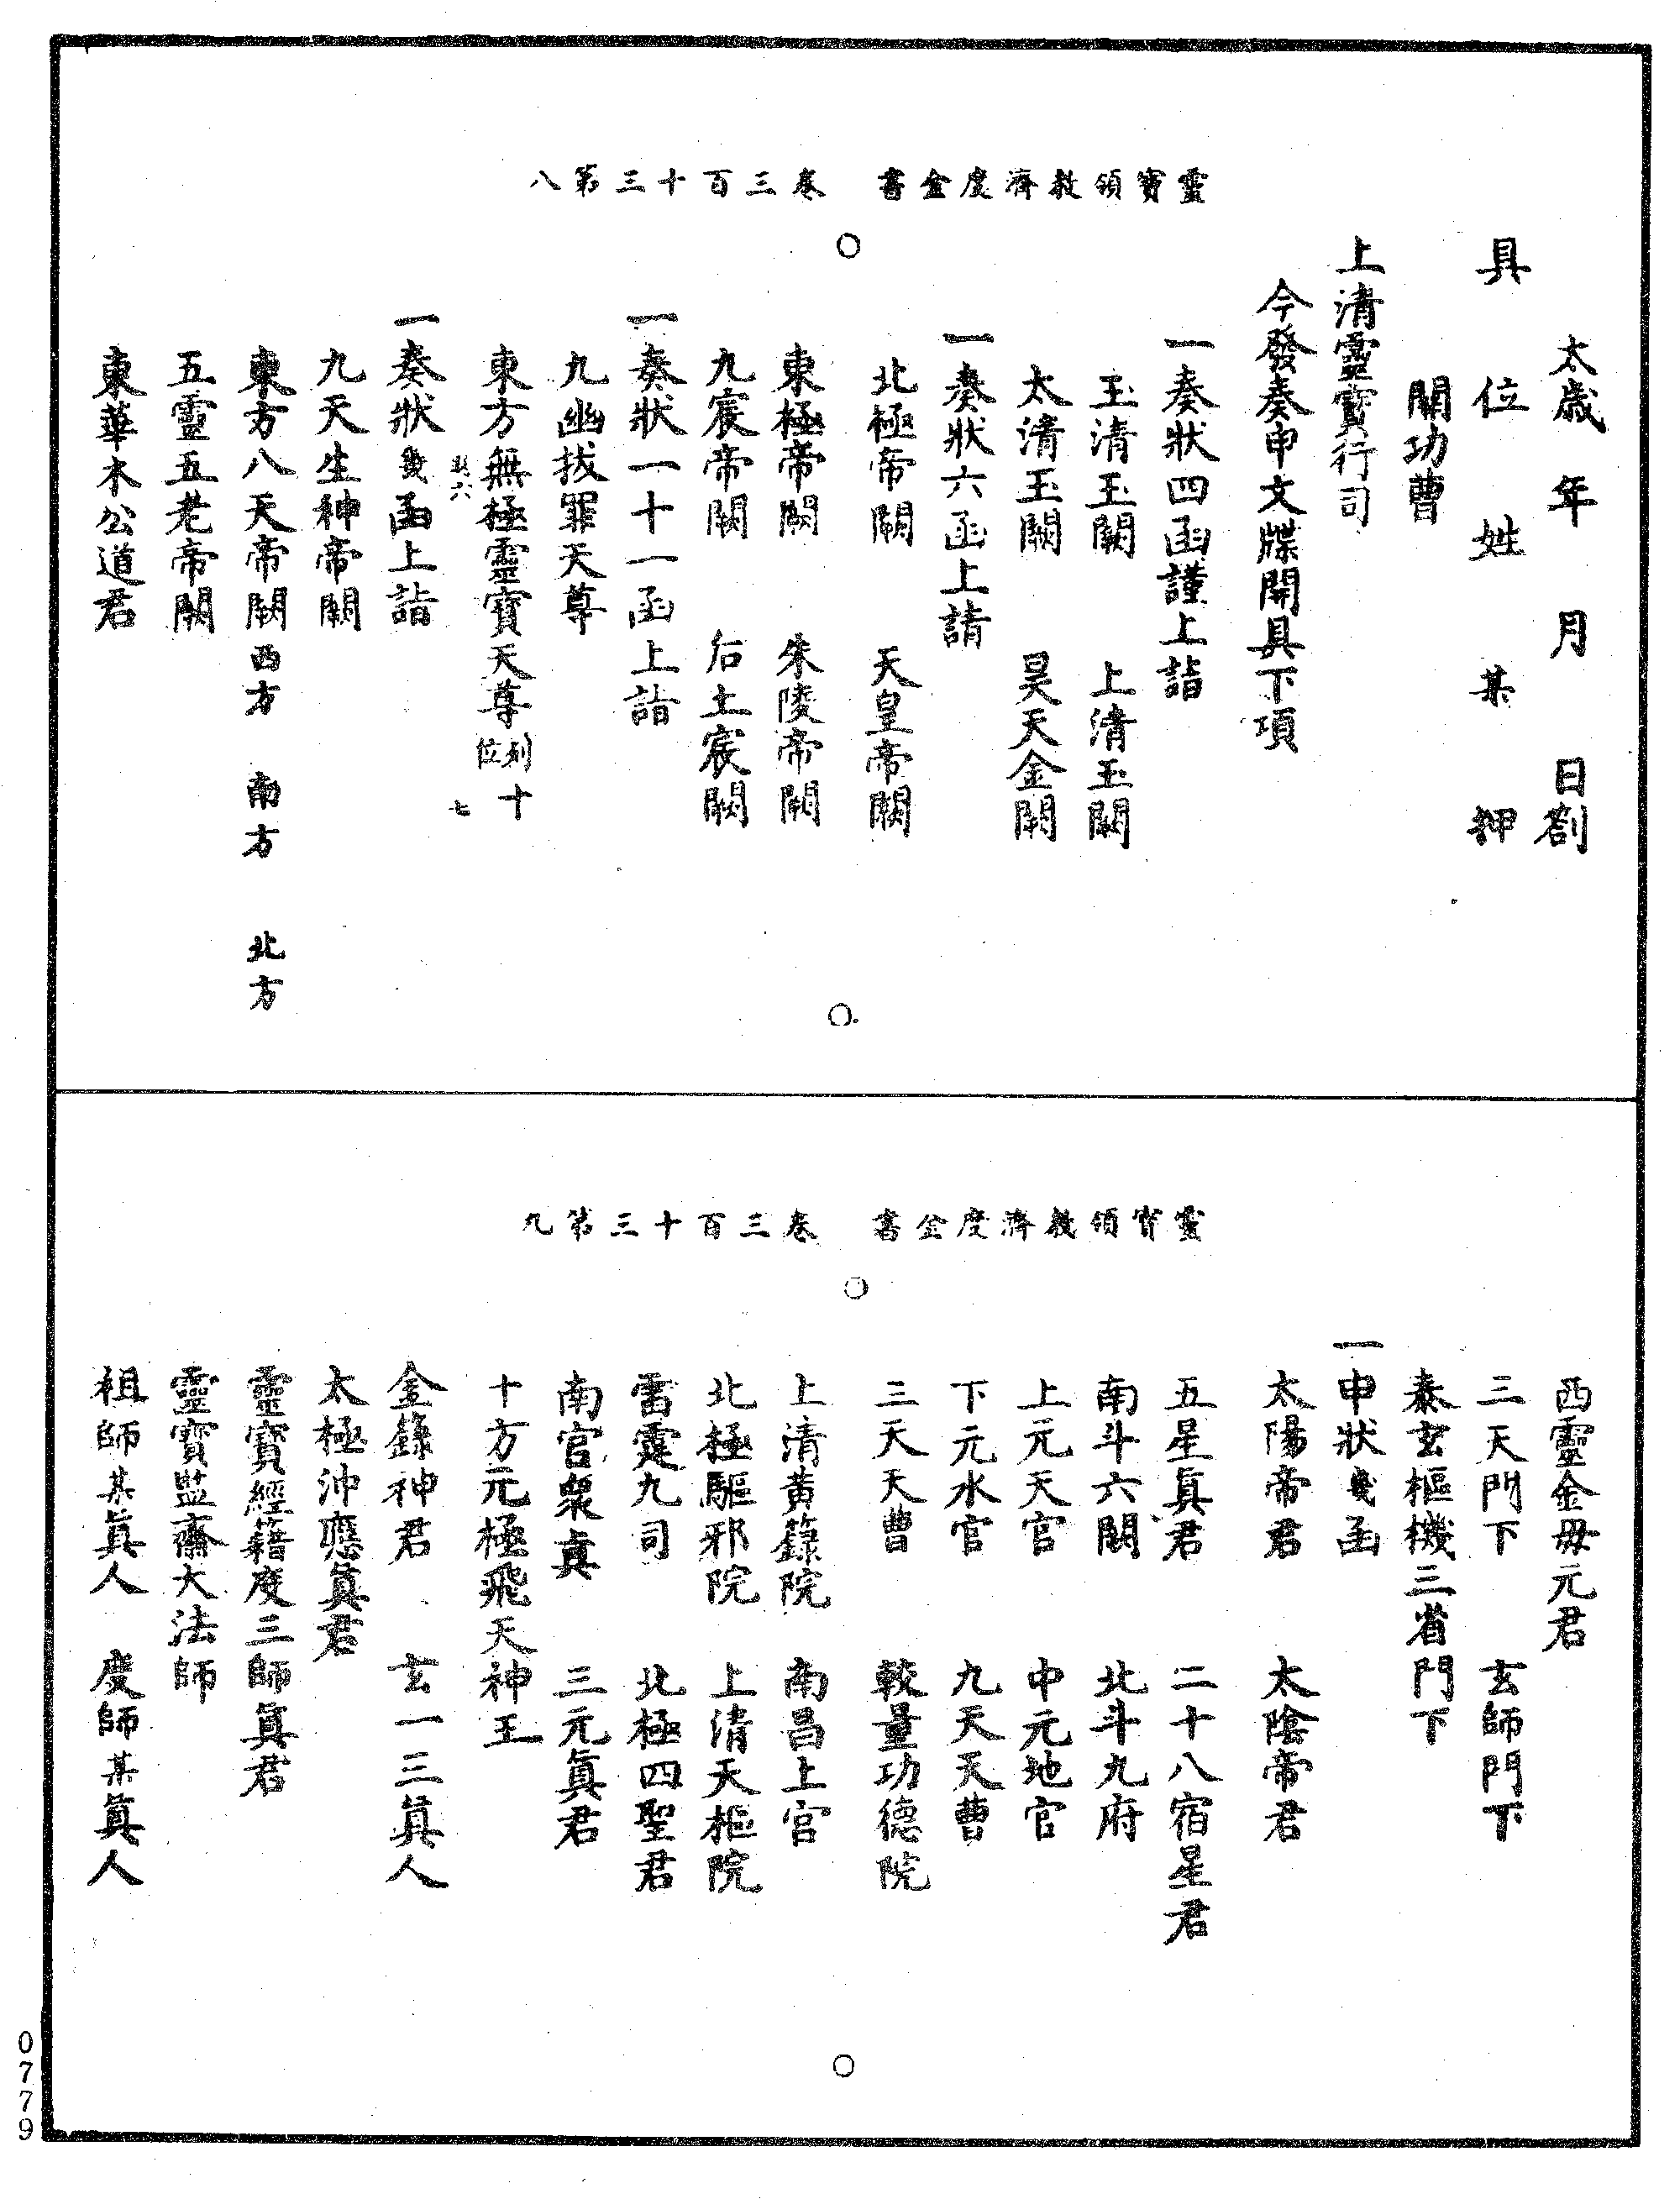 靈寶領教濟度金書　卷三百十三第八
太歲　年　月　日劄
具　位　姓　某　押
關功曹
上清靈寶行司
今發奏申文牒開具下項
一奏狀四函謹上詣
玉清玉闕　上清玉闕
太清玉闕　昊天金闕
一奏狀六函上請
北極帝闕　天皇帝闕
東極帝闕　朱陵帝闕
九宸帝闕　后土宸闕
一奏狀一十一函上詣
九幽拔罪天尊
東方無極靈寶天尊列十位
六　七
一奏狀幾函上詣
九天生神帝闕
東方八天帝闕西方　南方　北方
五靈五老帝闕
東華木公道君
靈寶領教濟度金書　卷三百十三第九
西靈金母元君
三天門下　玄師門下
泰玄樞機三省門下
一申狀幾函
太陽帝君　太陰帝君
五星眞君　二十八宿星君
南斗六闕　北斗九府
上元天官　中元地官
下元水官　九天天曹
三天天曹　較量功德院
上清黃籙院　南昌上宮
北極驅邪院　上清天樞院
雷霆九司　北極四聖君
南宮衆真　三元眞君
十方元極飛天神王
金籙神君　玄一三眞人
太極沖應眞君
靈寶經籍度三師眞君
靈寶監齋大法師
祖師某眞人　度師某眞人
0779